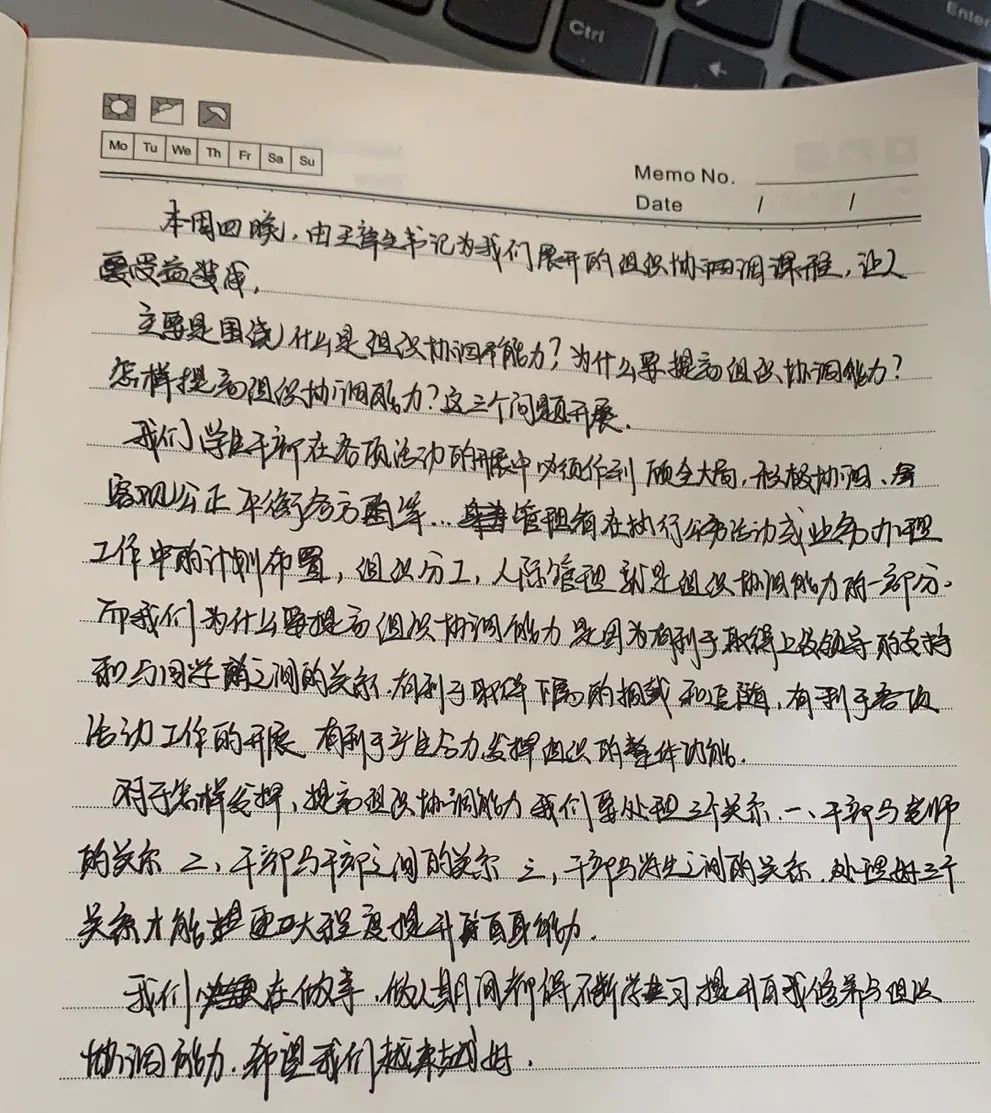 Ctrl
Enter
Mo Tu We Th Fr Sa Su
Memo No.
Date / /
本周四晚,由王 书记为我们展开的组织协调课程,让人
受益 。
主要是围绕什么是组织协调能力?为什么要提高组织协调能力?
怎样提高组织协调能力?这三个问题开展。
我们学生干部在各项活动的开展中必须作到顾全大局,积极协调、
客观公正平衡各方 等... 管理者在执行公务活动或业务办理
工作中的计划布置,组织分工,人际管理就是组织协调能力的一部分。
而我们为什么要提高组织协调能力是因为有利于取得上级领导的支持
和与同学之间的关系,有利于取得下属的拥戴和追随,有利于各项
活动工作的开展 有利于产生合力发挥组织的整体功能。
对于怎样发挥、提高组织协调能力我们要处理三个关系.一、干部与老师
的关系 二、干部与干部之间的关系 三,干部与学生之间的关系.处理好三个
关系才能更大程度提升自身能力.
我们在做事、做人期间都得不断学习提升自我修养与组织
协调能力.希望我们越来越好.